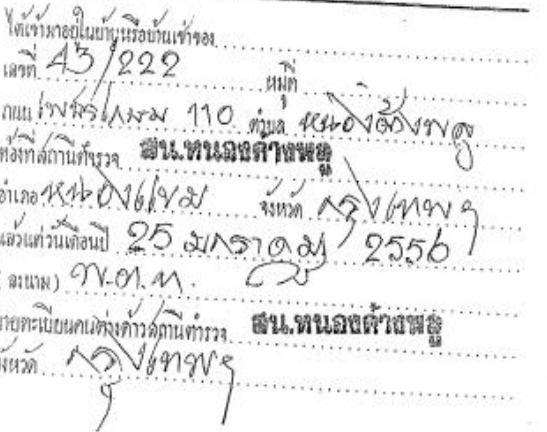 ได้เข้ามาอยู่ในบ้านหรือบ้านเช่าของ
เลขที่ 43/222 หมู่ที่
ถนน เพชรเกษม 110 ตำบล หนองค้างพลู
ท้องที่สถานีตำรวจ สน.หนองค้างพลู
อำเภอ หนองแขม จังหวัด กรุงเทพฯ
แล้วแต่วันเดือนปี 25 มกราคม 2556
ลงนาม) พ.ต.ท.
นายทะเบียนคนต่างด้าวสถานีตำรวจ สน.หนองค้างพลู
จังหวัด กรุงเทพฯ